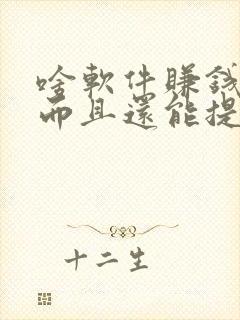 啥軟件賺錢
而且還能提
十二生